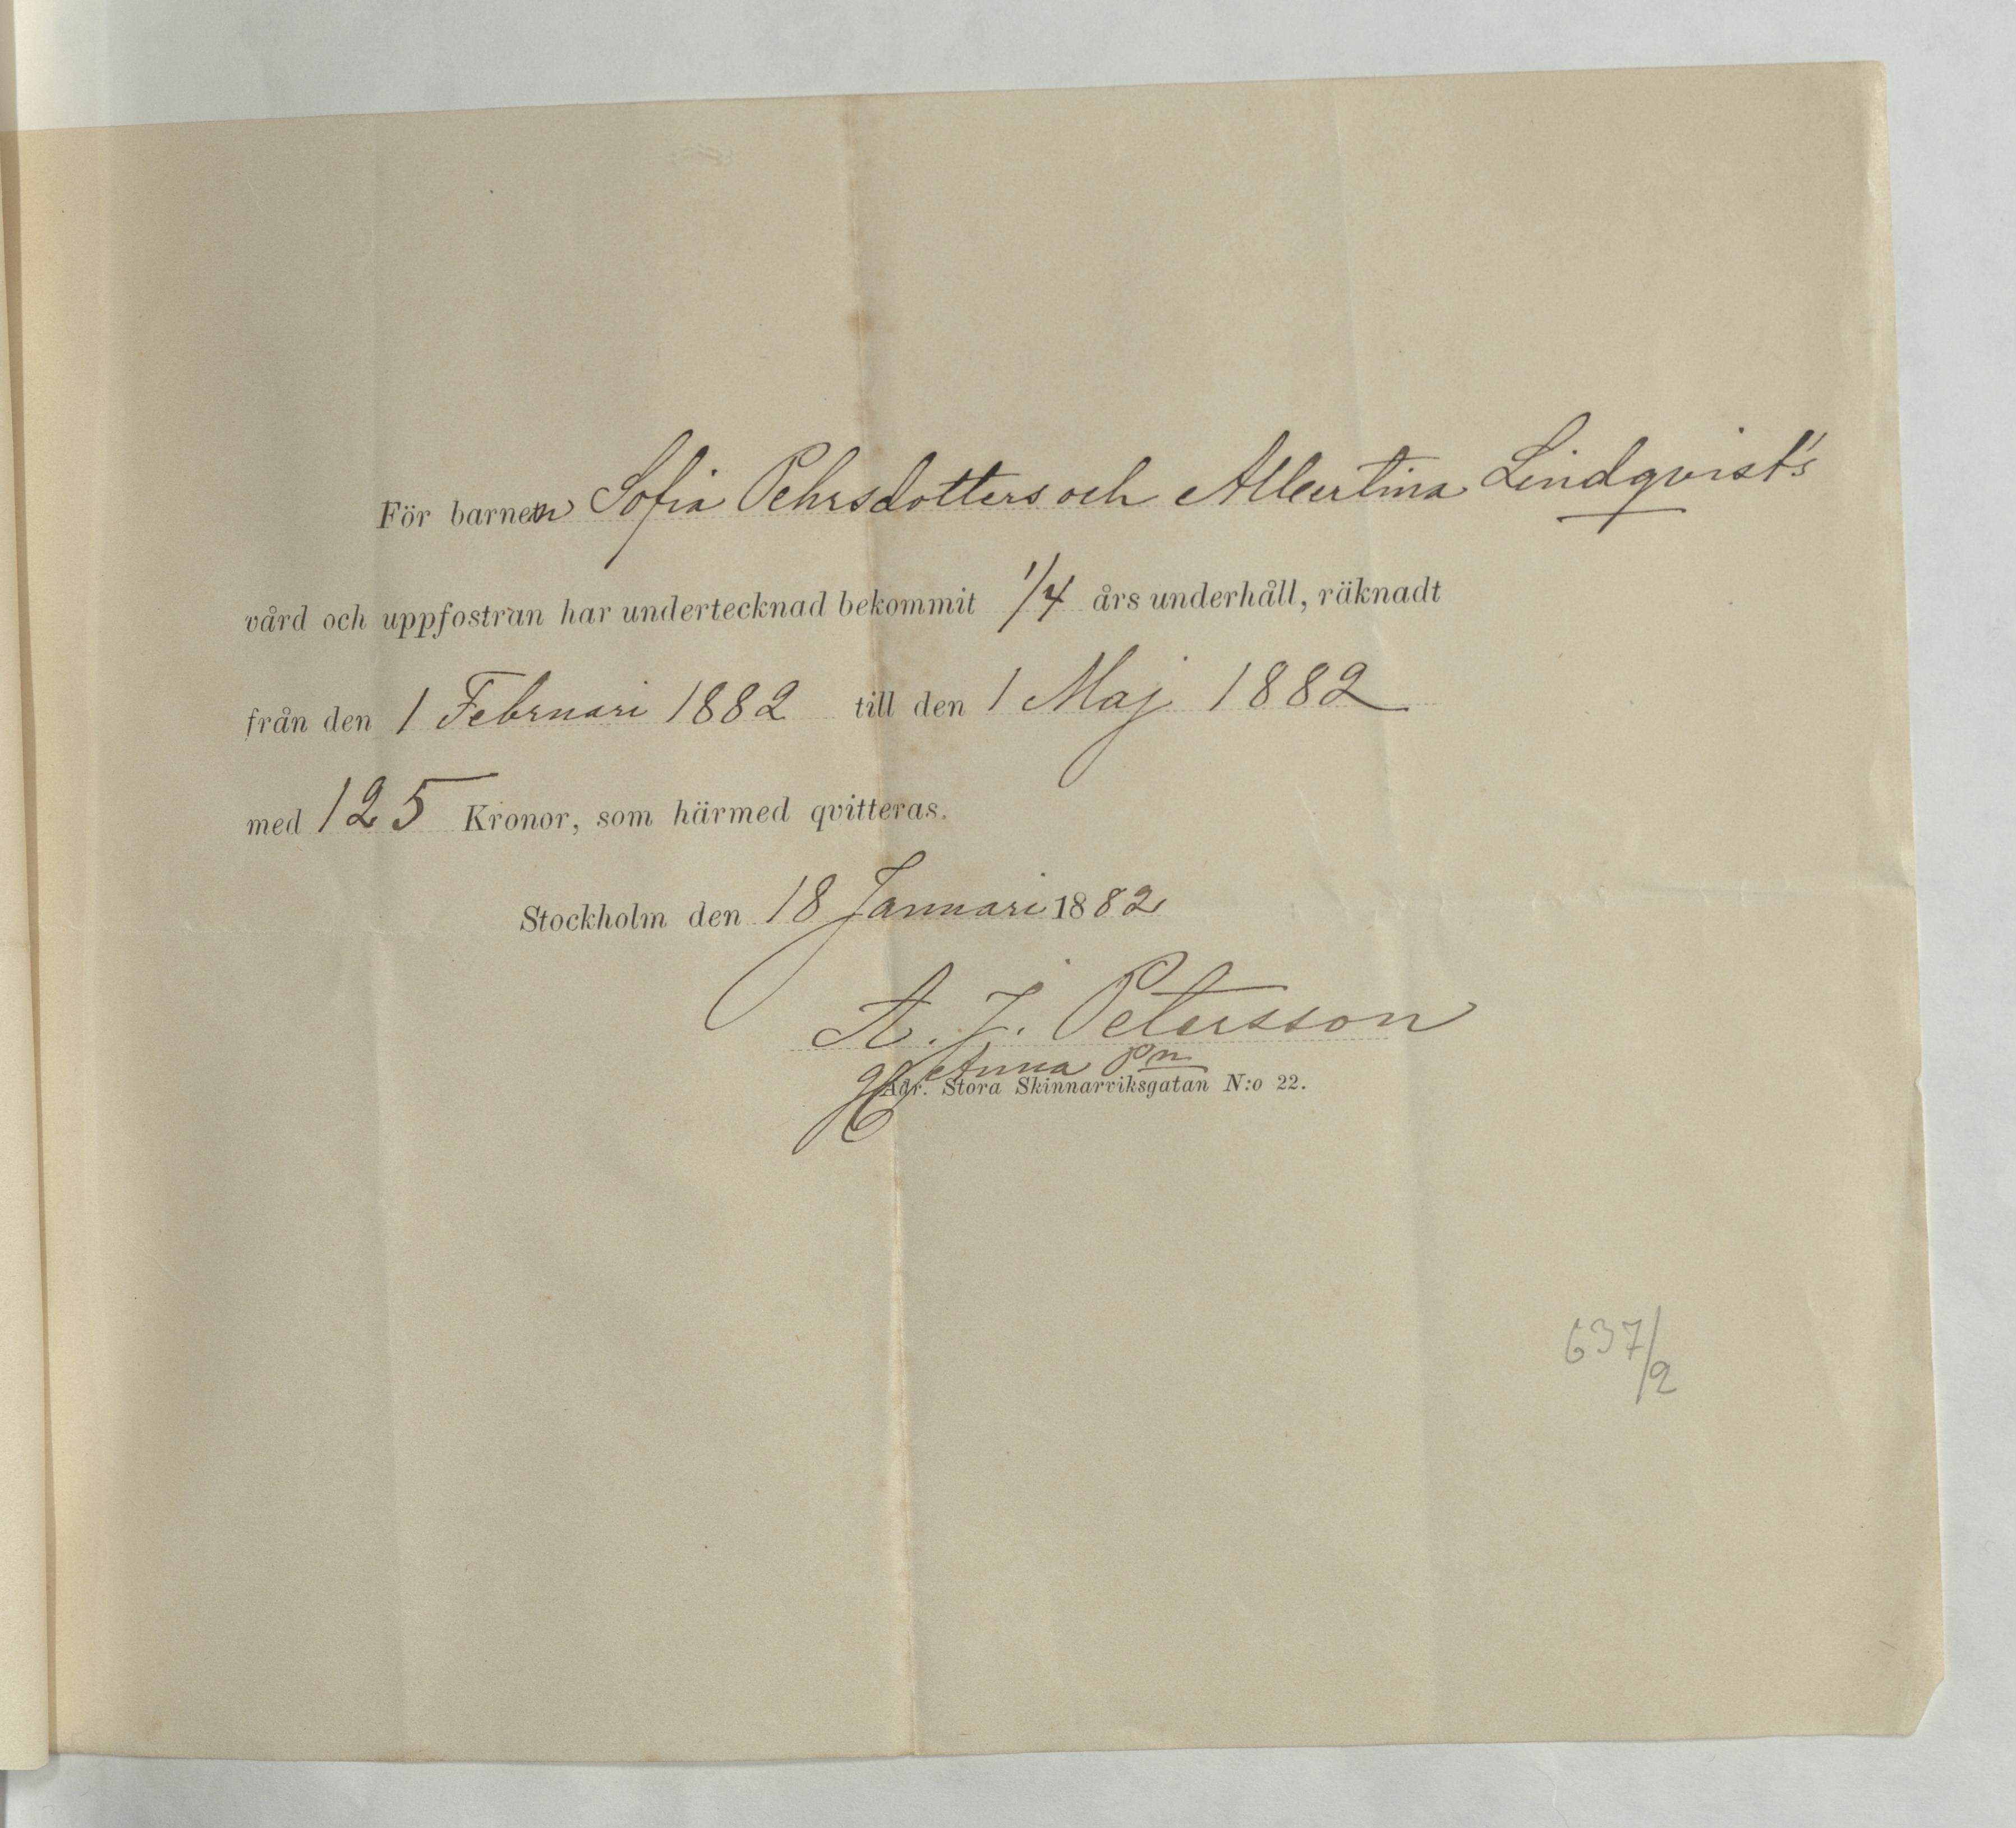 För barnen Sofia Pehrsdotters och Albertina Lindqvist's
vård och uppfostran har undertecknad bekommit 1/4 års underhåll, räknadt
från den 1 Februari 1882 till den 1 Maj 1882
med 125 Kronor, som härmed qvitteras.
Stockholm den 18 Januari 1882
A. J. Petersson
Anna Pn
Adr. Stora Skinnarviksgatan N:o 22.
637/2